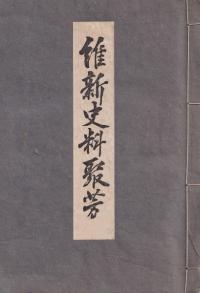 維新史料聚芳